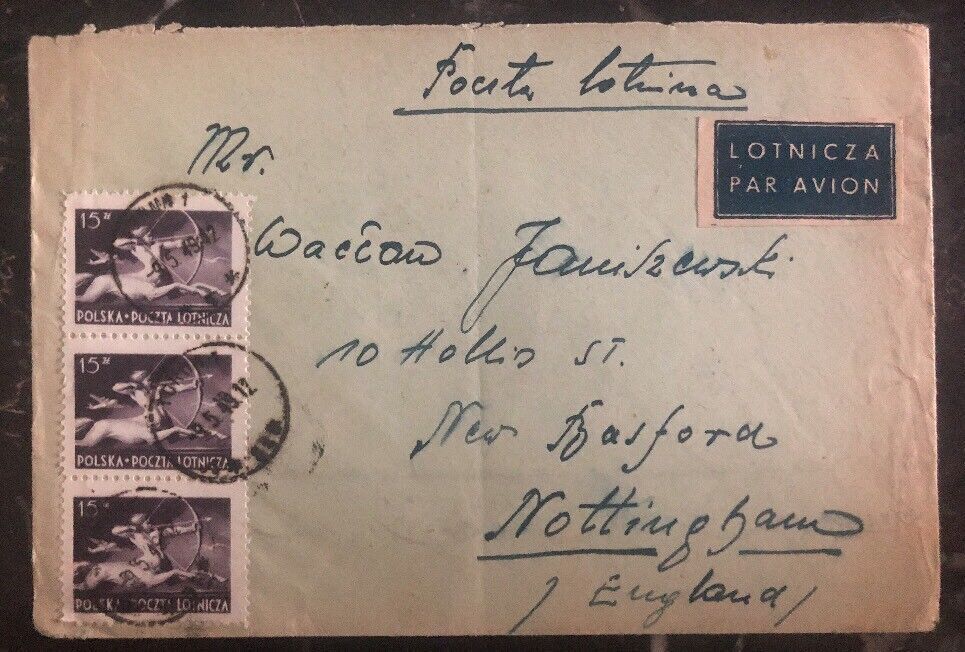 Poczta lotnicza
LOTNICZA
PAR AVION
Mr.
Wacław Janiszewski
10 Hollis ST.
New Basford
Nottingham
/ England /
15 zł
POLSKA • POCZTA LOTNICZA
15 zł
POLSKA • POCZTA LOTNICZA
15 zł
POLSKA • POCZTA LOTNICZA